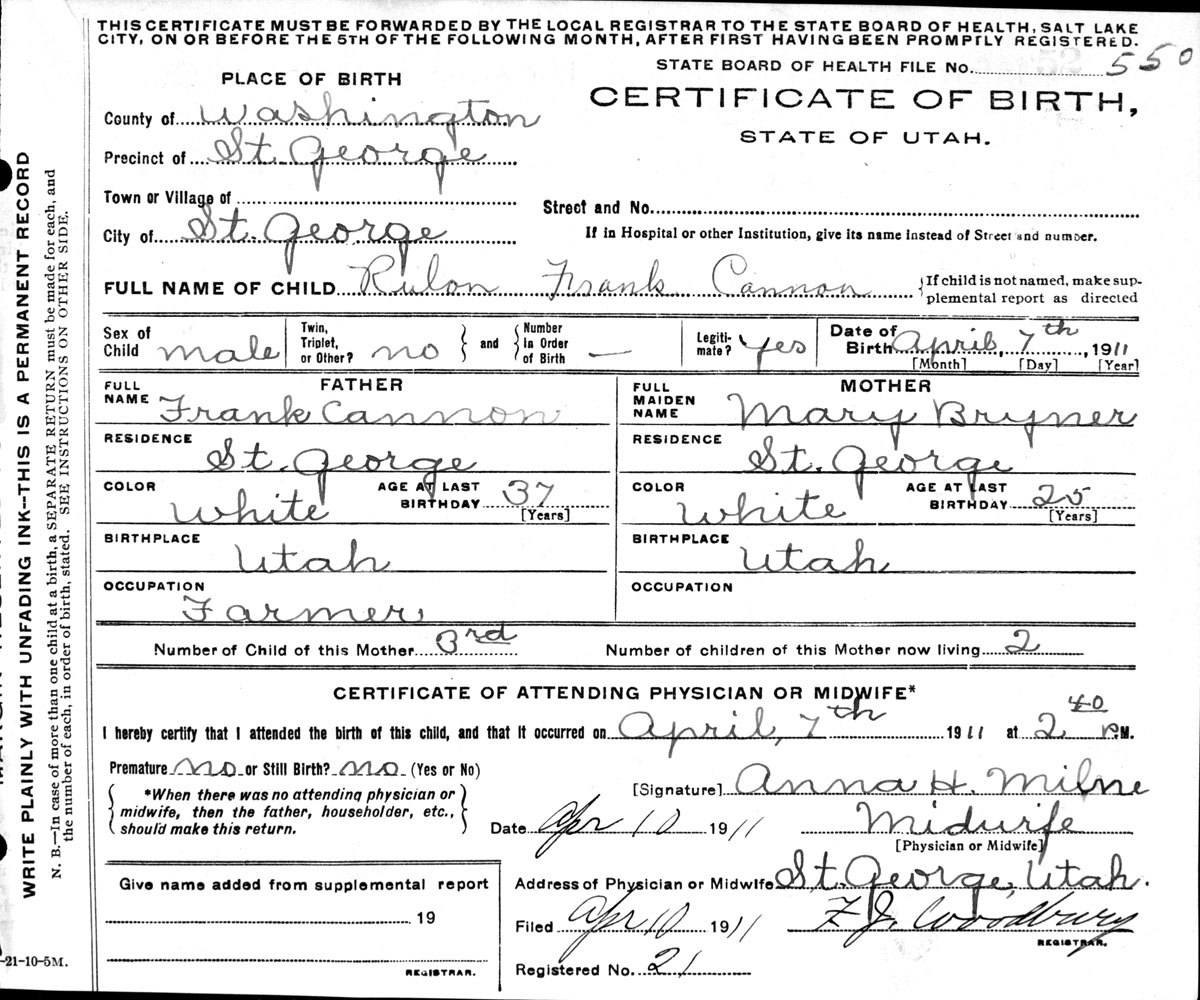 THIS CERTIFICATE MUST BE FORWARDED BY THE LOCAL REGISTRAR TO THE STATE BOARD OF HEALTH, SALT LAKE
CITY, ON OR BEFORE THE 5TH OF THE FOLLOWING MONTH, AFTER FIRST HAVING BEEN PROMPTLY REGISTERED.
STATE BOARD OF HEALTH FILE No. 550
PLACE OF BIRTH
CERTIFICATE OF BIRTH,
STATE OF UTAH.
County of Washington
Precinct of St. George
Town or Village of
Street and No.
City of St. George
If in Hospital or other Institution, give its name instead of Street and number.
FULL NAME OF CHILD Rulon Frank Cannon
If child is not named, make sup-
plemental report as directed
Sex of Child male
Twin, Triplet, or Other? no
and
Number In Order of Birth —
Legiti- mate? Yes
Date of Birth April, 7th, 1911
[Month] [Day] [Year]
FATHER
FULL NAME Frank Cannon
RESIDENCE St. George
COLOR White
AGE AT LAST BIRTHDAY 37
[Years]
BIRTHPLACE Utah
OCCUPATION Farmer
MOTHER
FULL MAIDEN NAME Mary Bryner
RESIDENCE St. George
COLOR White
AGE AT LAST BIRTHDAY 25
[Years]
BIRTHPLACE Utah
OCCUPATION
Number of Child of this Mother 3rd
Number of children of this Mother now living 2
CERTIFICATE OF ATTENDING PHYSICIAN OR MIDWIFE*
I hereby certify that I attended the birth of this child, and that it occurred on April, 7th 1911 at 2 40 P.M.
Premature no or Still Birth? no (Yes or No)
*When there was no attending physician or
midwife, then the father, householder, etc.,
should make this return.
[Signature] Anna H. Milne
Date Apr 10 1911
Midwife
[Physician or Midwife]
Give name added from supplemental report
19
REGISTRAR.
Address of Physician or Midwife St. George, Utah.
Filed Apr 10 1911
F J. Woodbury
REGISTRAR.
Registered No. 21
-21-10-5M.
WRITE PLAINLY WITH UNFADING INK—THIS IS A PERMANENT RECORD
N. B.—In case of more than one child at a birth, a SEPARATE RETURN must be made for each, and
the number of each, in order of birth, stated. SEE INSTRUCTIONS ON OTHER SIDE.